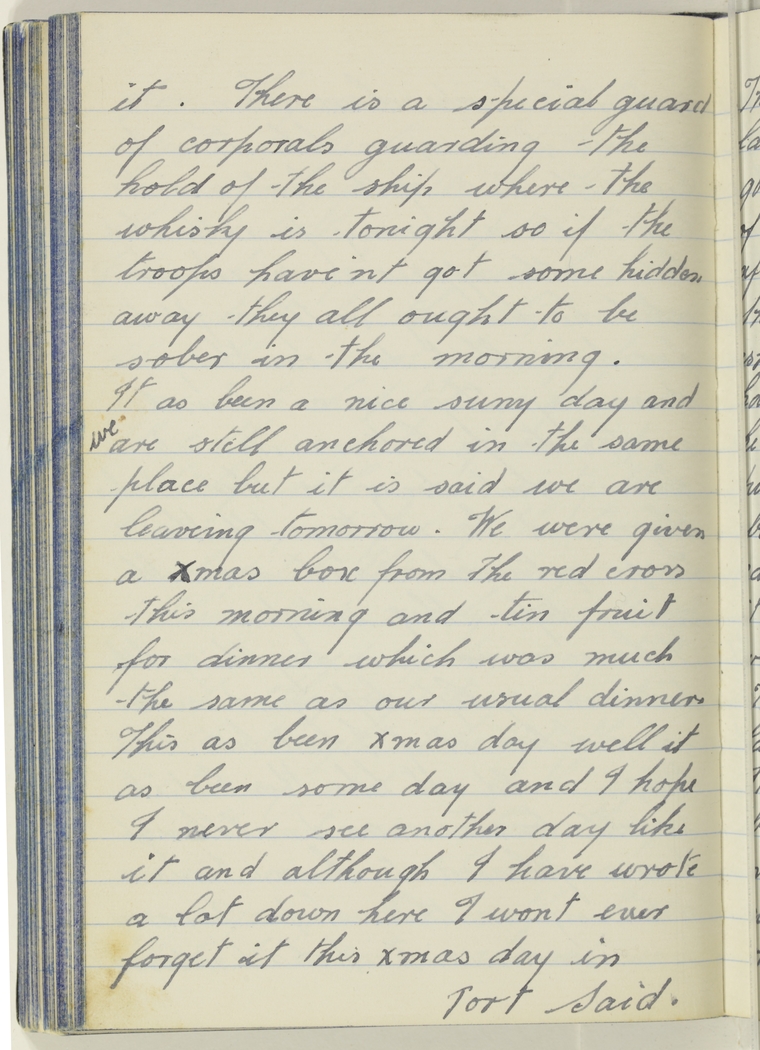 it. There is a special guard
of corporals guarding the
hold of the ship where the
whisky is tonight so if the
troops have'nt got some hidden
away they all ought to be
sober in the morning.
It as been a nice suny day and
we are still anchored in the same
place but it is said we are
leaveing tomorrow. We were given
a xmas box from the red cross
this morning and tin fruit
for dinner which was much
the same as our usual dinners
This as been xmas day well it
as been some day and I hope
I never see another day like
it and although I have wrote
a lot down here I wont ever
forget it this xmas day in
Port Said.